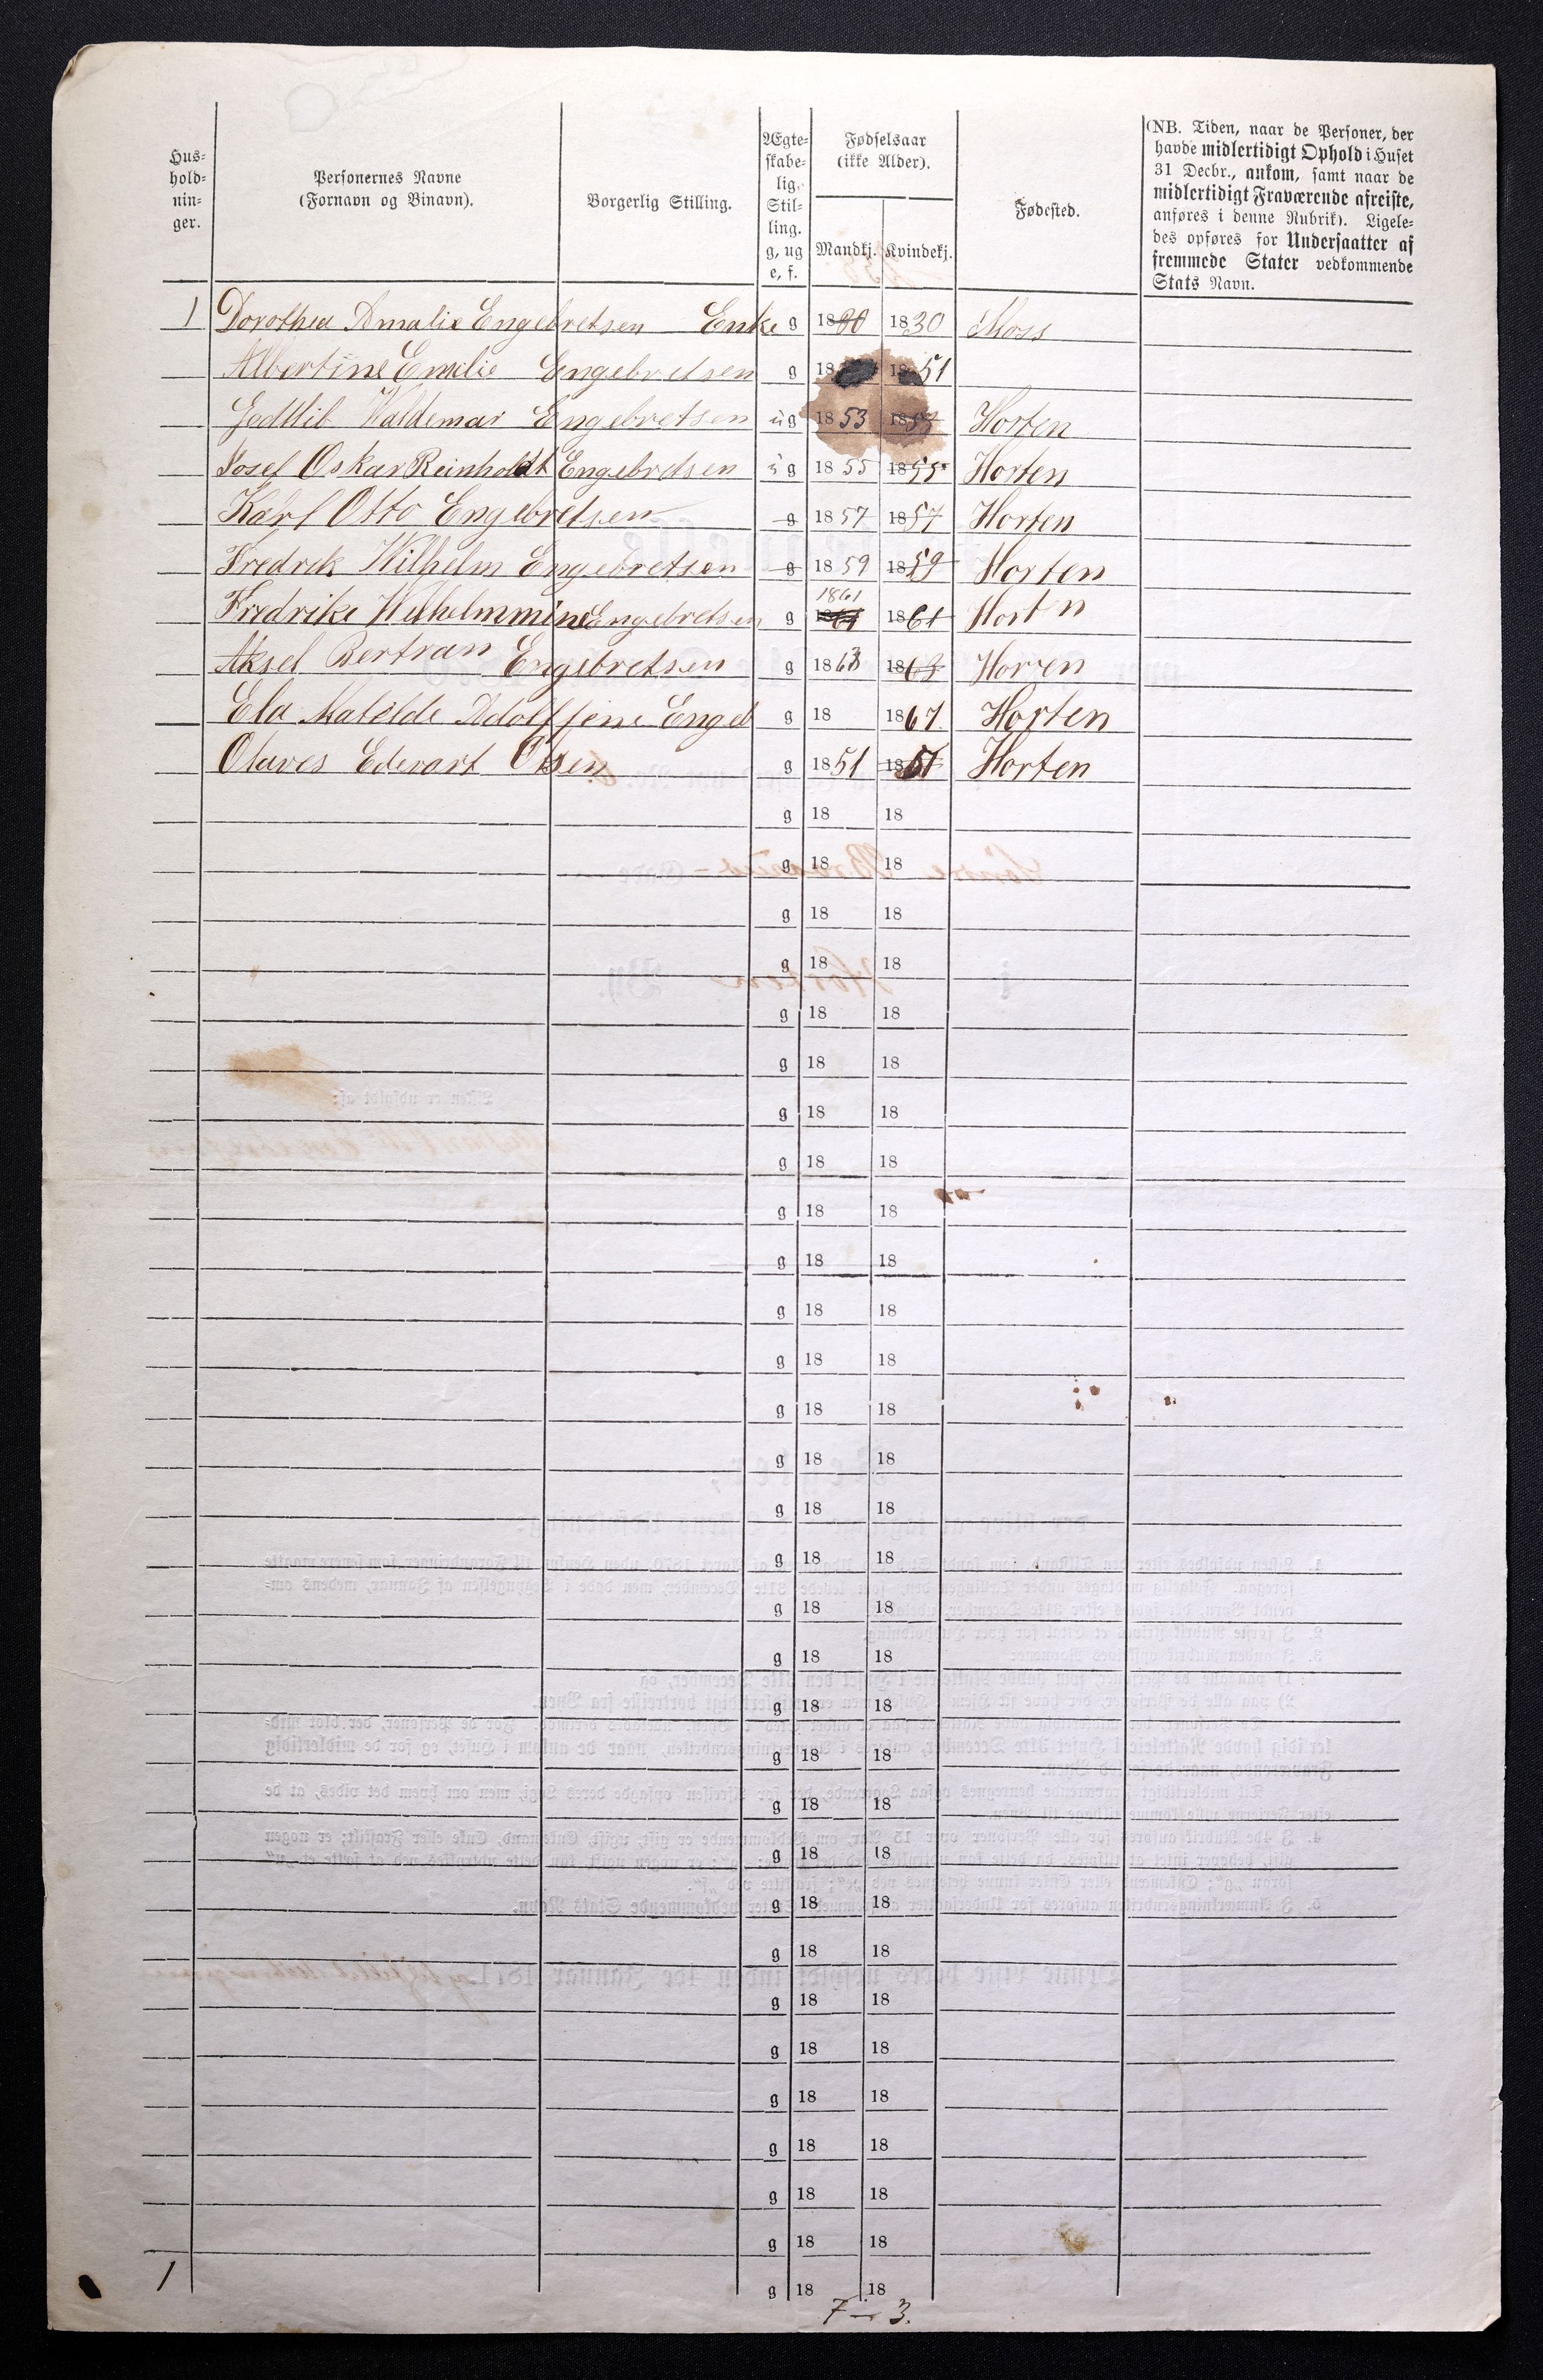 Hus-
hold-
nin-
ger.
Personernes Navne
(Fornavn og Binavn).
Borgerlig Stilling.
Ægte-
skabe-
lig
Stil-
ling.
g, ug
e, f.
Fødselsaar
(ikke Alder).
Mandkj. Kvindekj.
Fødested.
(NB. Tiden, naar de Personer, der
havde midlertidigt Ophold i Huset
31 Decbr., ankom, samt naar de
midlertidigt Fraværende afreiste,
anføres i denne Rubrik). Ligele-
des opføres for Undersaatter af
fremmede Stater vedkommende
Stats Navn.
1 Dorothea Amalie Engebretsen Enke g 1830 1830 Moss
Albertine Emilie Engebretsen g 18 1851
Godtlib Waldemar Engebretsen ug 1853 1853 Horten
Josef Oskar Reinholdt Engebretsen ug 1855 1855 Horten
Karl Otto Engebretsen g 1857 1857 Horten
Fredrik Wilhelm Engebretsen g 1859 1859 Horten
1861
Fredrike Wilhelmmine Engebretsen g 1861 1861 Horten
Aksel Bertran Engebretsen g 1863 1863 Horten
Ela Matelde Adolffine Engeb g 18 1867 Horten
Olaves Edevart Olsen g 1851 1851 Horten
g 18 18
g 18 18
g 18 18
g 18 18
g 18 18
g 18 18
g 18 18
g 18 18
g 18 18
g 18 18
g 18 18
g 18 18
g 18 18
g 18 18
g 18 18
g 18 18
g 18 18
g 18 18
g 18 18
g 18 18
g 18 18
g 18 18
g 18 18
g 18 18
g 18 18
g 18 18
g 18 18
g 18 18
g 18 18
g 18 18
1 g 18 18
7 - 3.